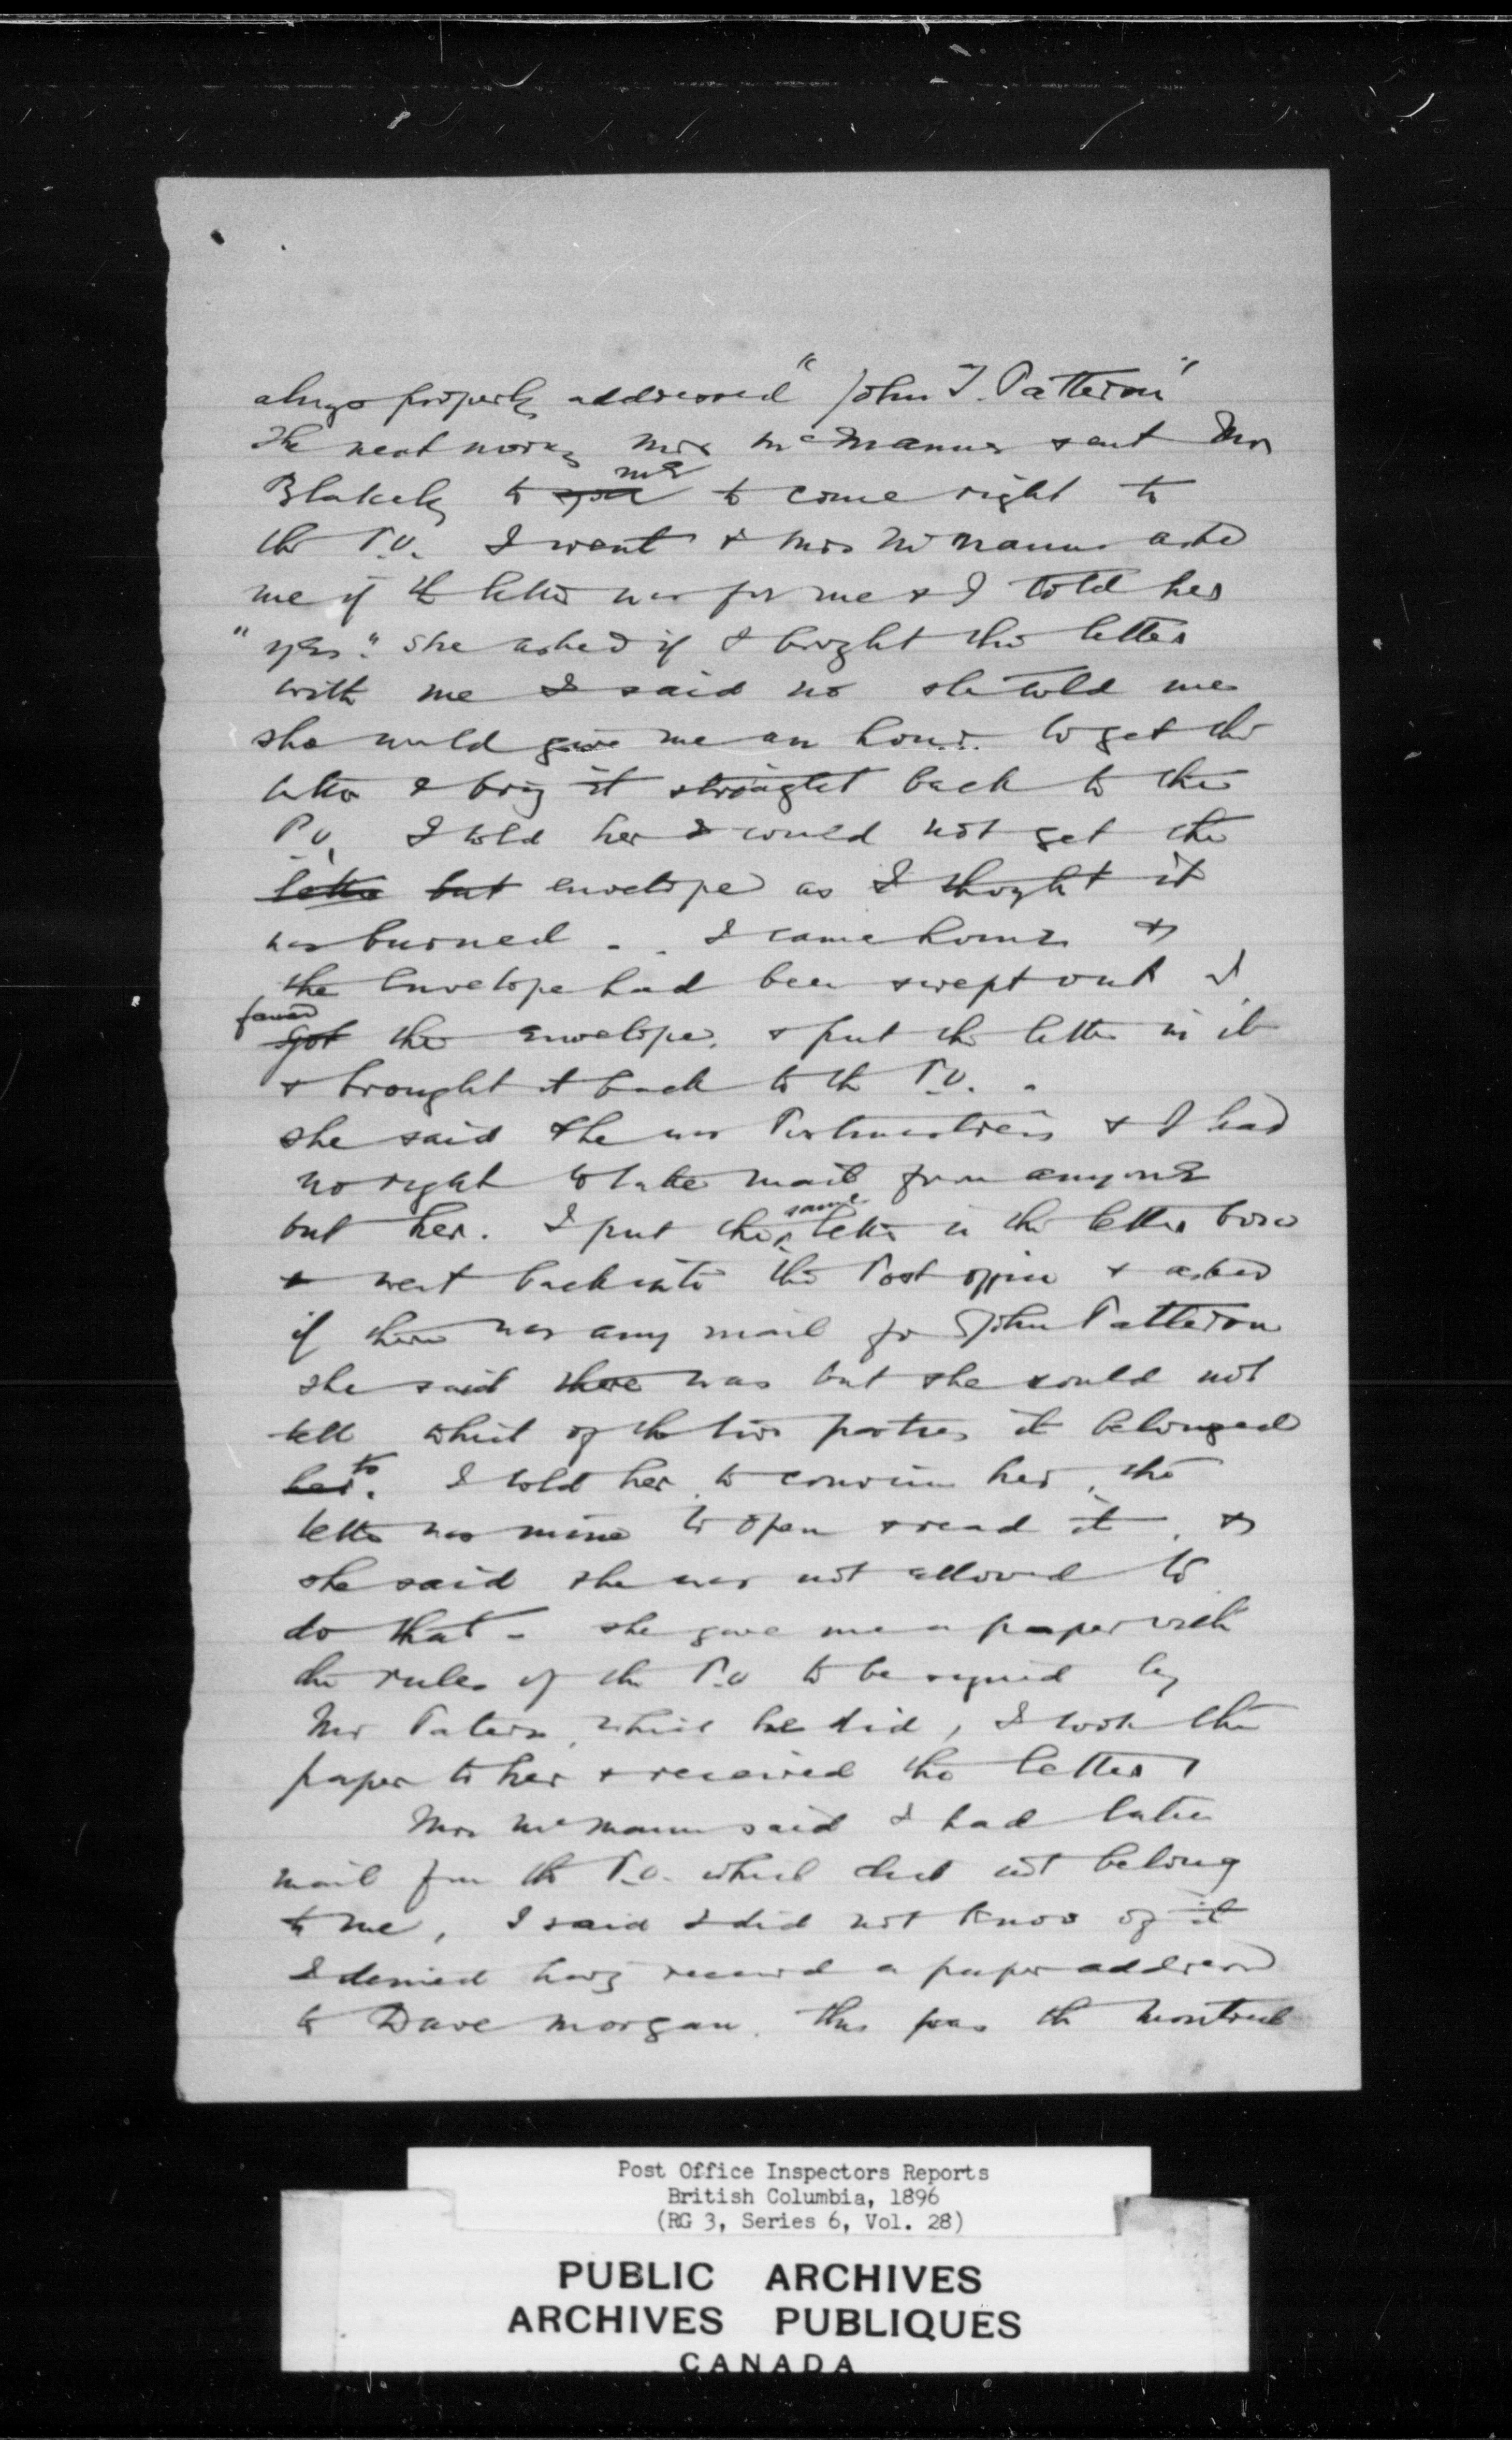 always properly addressed "John T. Patterson"
The next morng Mrs McManus sent Mrs
Blakely to you me to come right to
the P.O. I went & Mrs McManus asked
me if the letter was for me & I told her
"yes." She asked if I brought the letter
with me I said no she told me
she would give me an hour to get the
letter & bring it straight back to the
P.O. I told her I could not get the
letter but envelope as I thought it
was burned. I came home &
the envelope had been swept out I
got found the envelope, & put the letter in it
& brought it back to the P.O.
she said she was Postmistress & I had
no right to take mail from anyone
but her. I put the same letter in the letter box
& went back into the Post office & asked
if there was any mail for John Patterson
she said there was but she could not
tell which of the two parties it belonged
her to. I told her, to convince her, the
letter was mine to open & read it, &
she said she was not allowed to
do that - she gave me a paper with
the rules of the P.O to be signed by
Mr Patterson, which he did, I took the
paper to her & received the letter
Mrs McManus said I had taken
mail from the P.O. which did not belong
to me, I said I did not know of it
I denied having received a paper addressed
to Dave Morgan. this was the Montreal
Post Office Inspectors Reports
British Columbia, 1896
(RG 3, Series 6, Vol. 28)
PUBLIC ARCHIVES
ARCHIVES PUBLIQUES
CANADA